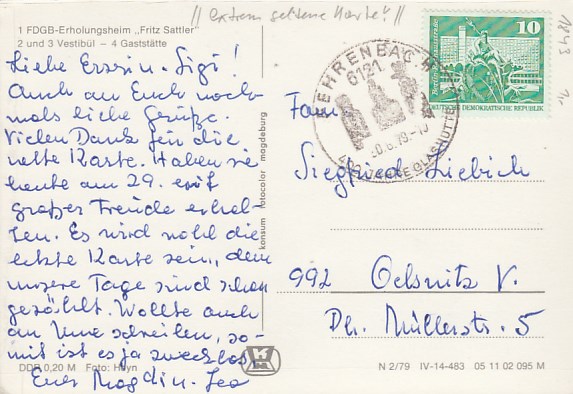 // extrem seltene Karte! //
1 FDGB-Erholungsheim „Fritz Sattler"
2 und 3 Vestibül — 4 Gaststätte
Liebe Sigi!
Auch an Euch noch-
mals liebe Grüße.
Vielen Dank für die
nette Karte. Haben sie
heute am 29. mit
großer Freude erhal-
ten. Es wird wohl die
letzte Karte sein, denn
unsere Tage sind schon
gezählt. Wollte auch
an schreiben, so-
mit ist es ja zwecklos
Eure
DDR 0,20 M Foto: Hoyn
konsum fotocolor magdeburg
FEHRENBACH
6121
400 JAHRE GLASHÜTTE
10
DEUTSCHE DEMOKRATISCHE REPUBLIK
1843
Fam.
Siegfried Liebich
992 Oelsnitz V.
Dr. Müllerstr. 5
N 2/79 IV-14-483 05 11 02 095 M